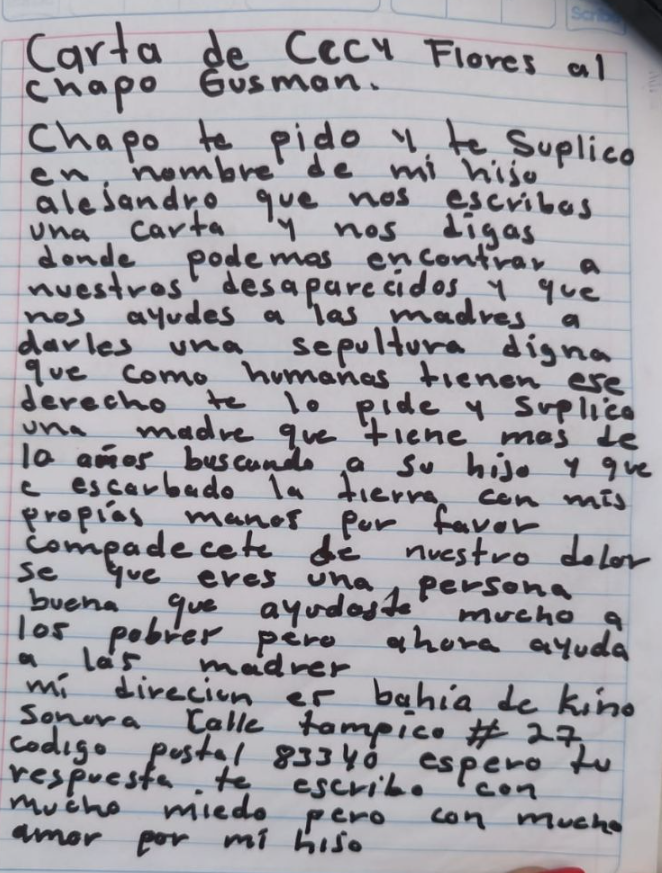 Scribe
Carta de Cecy Flores al
chapo Gusman.
Chapo te pido y te Suplico
en nombre de mi hijo
alejandro que nos escribas
una carta y nos digas
donde podemos encontrar a
nuestros desaparecidos y que
nos ayudes a las madres a
darles una sepultura digna
que como humanas tienen ese
derecho te lo pide y suplica
una madre que tiene mas de
10 años buscando a su hijo y que
e escarbado la tierra con mis
propias manos por favor
compadecete de nuestro dolor
se que eres una persona
buena que ayudaste mucho a
los pobrer pero ahora ayuda
a las madrer
mi direcion er bahia de kino
Sonora Calle tampico # 27
codigo postal 83340 espero tu
respuesta te escribo con
mucho miedo pero con mucho
amor por mi hijo